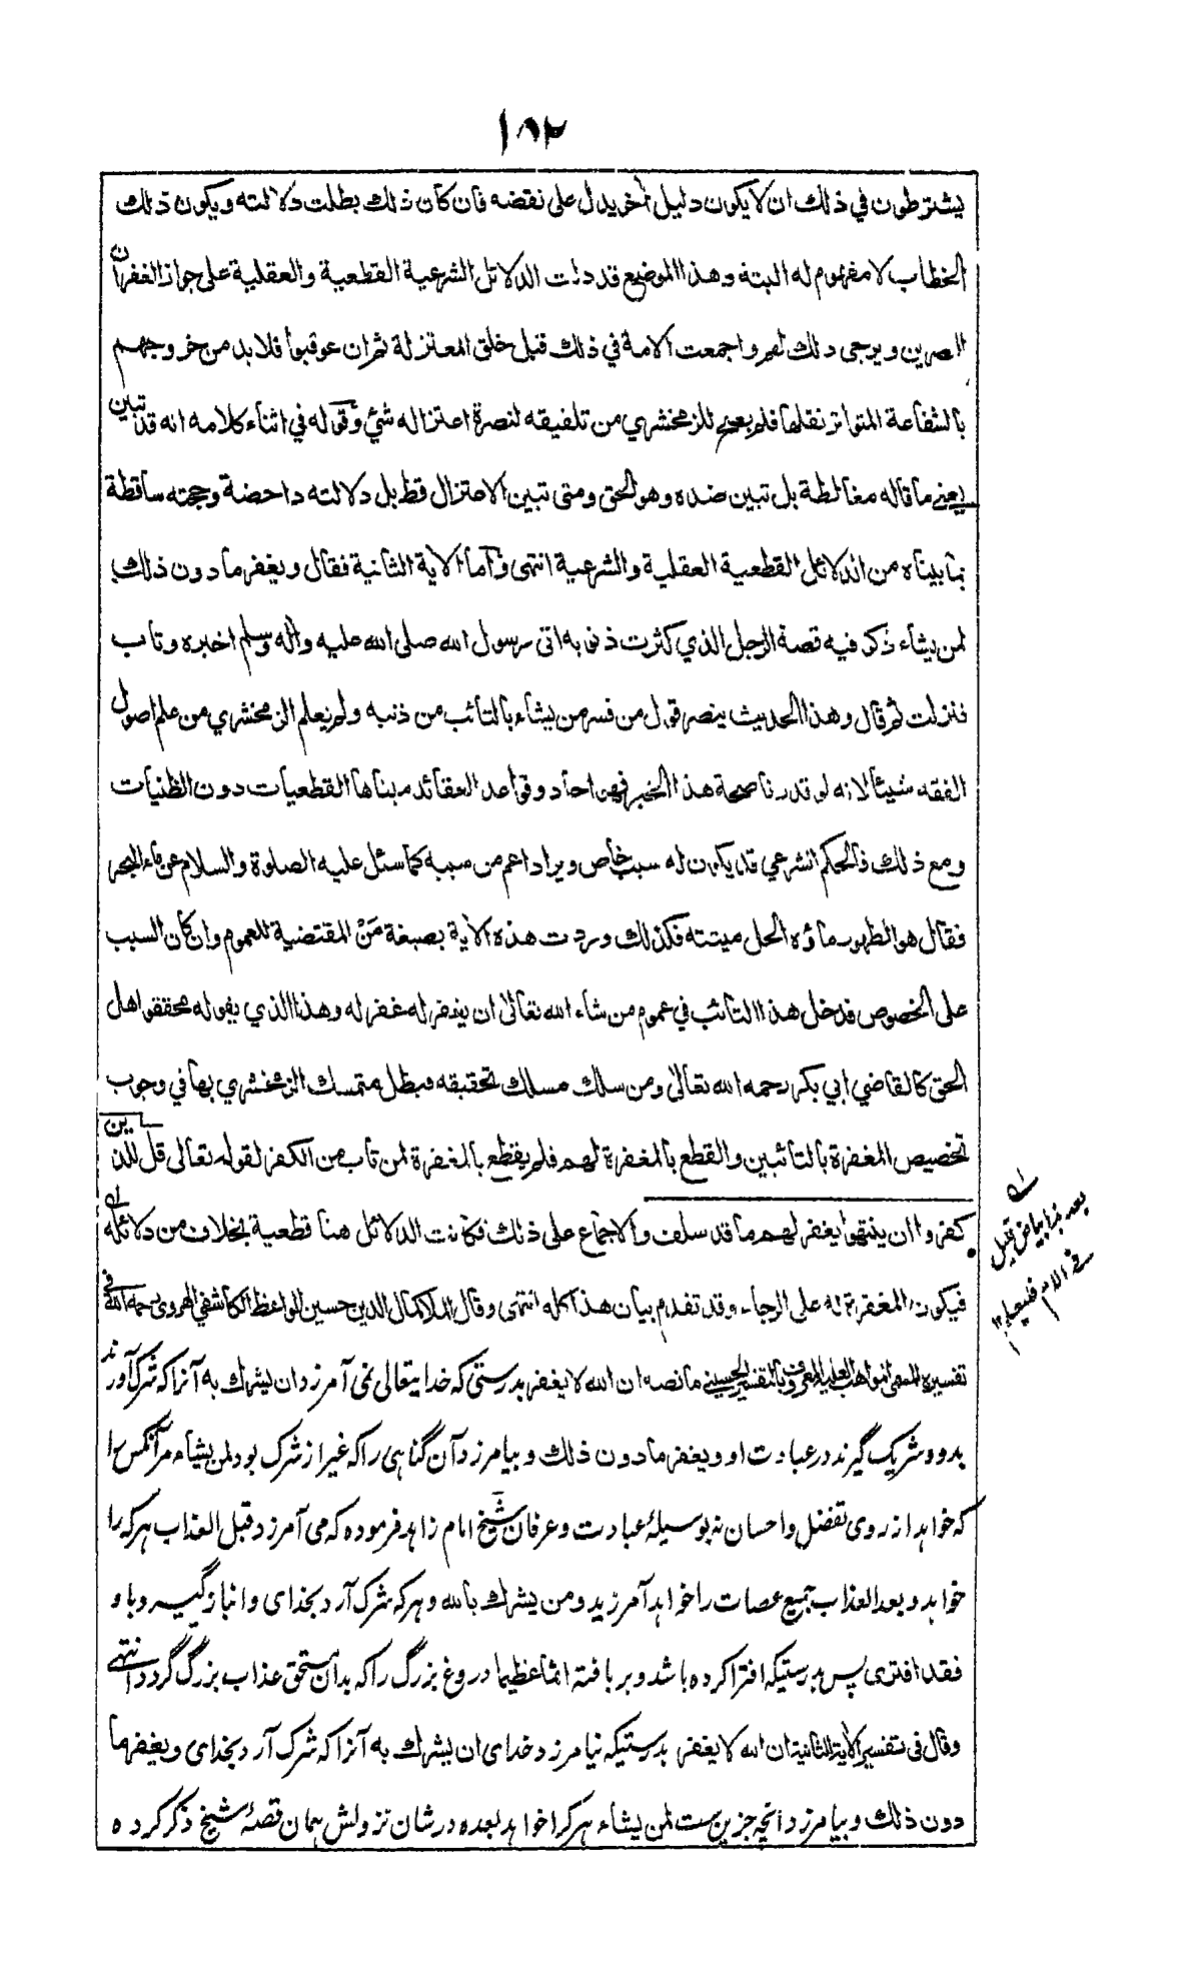 ١٨٢
يشترطون في ذلك ان لا يكون دليل آخر يدل على نقضه فان كان ذلك بطلت دلالته ويكون ذلك
الخطاب لا مفهوم له البتة وهذا الموضع قد دلت الدلائل الشرعية القطعية والعقلية على جواز الغفران
للمصرين ويرجى ذلك لهم واجمعت الامة في ذلك قبل خلق المعتزلة ثم ان عوقبوا فلا بد من خروجهم
بالشفاعة المتواتر نقلها فلم للزمخشري من تلفيقه لنصرة اعتزاله شئ وقوله في اثناء كلامه انه قد تبين
يعني ما قاله مغالطة بل تبين ضده وهو الحق ومتى تبين الاعتزال قط بل دلالته داحضة وحجته ساقطة
بما بيناه من الدلائل القطعية العقلية والشرعية انتهى وآما الاية الثانية فقال ويغفر ما دون ذلك
لمن يشاء ذكر فيه قصة الرجل الذي كثرت ذنوبه اتى رسول الله صلى الله عليه وآله وسلم اخبره وتاب
فنزلت ثم قال وهذا الحديث ينصر قول من فسر من يشاء بالتائب من ذنبه ولم يعلم الزمخشري من علم اصول
الفقه شيئا لانه لو قدرنا صحة هذا الخبر فهو احاد وقواعد العقائد مبناها القطعيات دون الظنيات
ومع ذلك فالحكم الشرعي قد يكون له سبب خاص ويراد اعم من سببه كما سئل عليه الصلوة والسلام عن ماء البحر
فقال هو الطهور ماؤه الحل ميتته فكذلك وردت هذه الاية بصيغة مَنْ المقتضية للعموم وان كان السبب
على الخصوص فدخل هذا التائب في عموم من شاء الله تعالى ان يغفر له غفر له وهذا الذي يقوله محققو اهل
الحق كالقاضي ابي بكر رحمه الله تعالى ومن سلك مسلك تحقيقه فبطل متمسك الزمخشري بها في وجوب
تخصيص المغفرة بالتائبين والقطع بالمغفرة لهم فلم يقطع بالمغفرة لمن تاب من الكفر لقوله تعالى قل للذين
كفروا ان ينتهوا يغفر لهم ما قد سلف والاجماع على ذلك فكانت الدلائل هنا قطعية بخلاف من دلائله
فيكون المغفرة له على الرجاء وقد تقدم بيان هذا كله انتهى وقال الملا كمال الدين حسين الواعظ الكاشفي الهروى رحمه الله في
تفسيره المسمى المواهب العلية المعروف بالتفسير الحسيني ما نصه ان الله لا يغفر بدرستى كه خدايتعالى نمى آمرزد ان يشرك به آنرا كه شرك آورند
بدو وشريك گيرند در عبادت او ويغفر ما دون ذلك وبيامرزد آن گناهى را كه غير از شرك بود لمن يشاء مر آنكس را
كه خواهد از روى تفضل واحسان نه بوسيلهٔ عبادت وعرفان شيخ امام زاهد فرموده كه مى آمرزد قبل العذاب هركه را
خواهد وبعد العذاب جميع عصات را خواهد آمرزيد ومن يشرك بالله وهركه شرك آرد بخداى وانباز گيرد وباو
فقد افترى پس بدرستيكه افترا كرده باشد وبر بافته اثما عظيما دروغ بزرگ را كه بدان مستحق عذاب بزرگ گردد انتهى
وقال فى تفسير الاية الثانية ان الله لا يغفر بدرستيكه نيامرزد خداى ان يشرك به آنرا كه شرك آرد بخداى ويغفر ما
دون ذلك وبيامرزد انچه جزين ست لمن يشاء هركرا خواهد بعده در شان نزولش همان قصهٔ شيخ ذكر كرده
بعد هذا بياض قبل